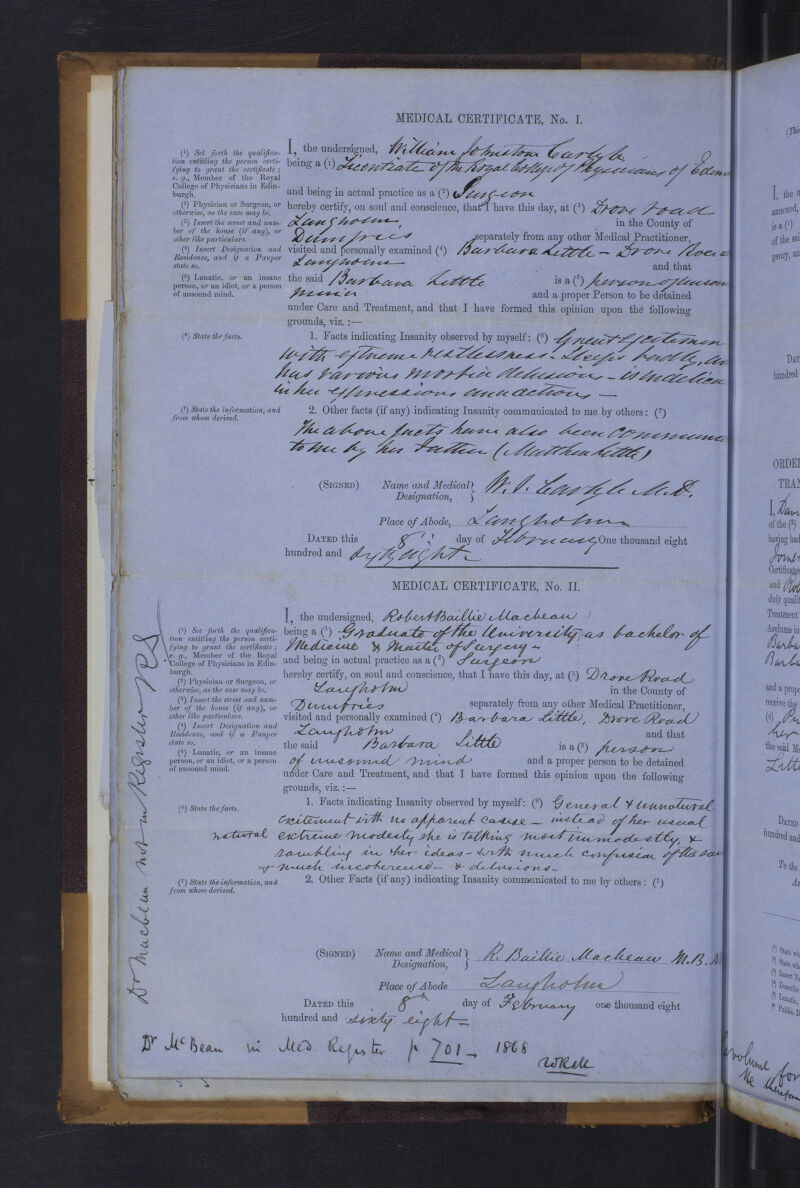 MEDICAL CERTIFICATE, No. I.
(¹) Set forth the qualifica-
tion entitling the person certi-
fying to grant the certificate;
e. g., Member of the Royal
College of Physicians in Edin-
burgh.
(²) Physician or Surgeon, or
otherwise, as the case may be.
(³) Insert the street and num-
ber of the house (if any), or
other like particulars.
(⁴) Insert Designation and
Residence, and if a Pauper
state so.
(⁵) Lunatic, or an insane
person, or an idiot, or a person
of unsound mind.
I, the undersigned, William Johnstone Carlyle
being a (¹) Licentiate of the Royal College of Physicians of Edin
and being in actual practice as a (²) Surgeon
hereby certify, on soul and conscience, that I have this day, at (³) Drove road
Langholm in the County of
Dumfries separately from any other Medical Practitioner,
visited and personally examined (⁴) Barbara Little – Drove Road
Langholm and that
the said Barbara Little is a (⁵) person of unsoun
mind and a proper Person to be detained
under Care and Treatment, and that I have formed this opinion upon the following
grounds, viz. :—
(⁶) State the facts.
1. Facts indicating Insanity observed by myself: (⁶) Great Excitemen
with extreme restlessness – Sleeps badly, an
has various morbid delusions – is indelica
in her expressions and actions –
(⁷) State the information, and
from whom derived.
2. Other facts (if any) indicating Insanity communicated to me by others: (⁷)
The above facts have also been communica
to me by her Father (Matthew Little)
(SIGNED) Name and Medical Designation, W. J. Carlyle M.D.
Place of Abode, Langholm
DATED this 8th day of February One thousand eight
hundred and sixty eight
MEDICAL CERTIFICATE, No. II.
(¹) Set forth the qualifica-
tion entitling the person certi-
fying to grant the certificate;
e. g., Member of the Royal
College of Physicians in Edin-
burgh.
(²) Physician or Surgeon, or
otherwise, as the case may be.
(³) Insert the street and num-
ber of the house (if any), or
other like particulars.
(⁴) Insert Designation and
Residence, and if a Pauper
state so.
(⁵) Lunatic, or an insane
person, or an idiot, or a person
of unsound mind.
I, the undersigned, Robert Baillie Macbean
being a (¹) Graduate of the University, as bachelor of
Medicine & Master of Surgery –
and being in actual practice as a (²) Surgeon
hereby certify, on soul and conscience, that I have this day, at (³) Drove Road
Langholm in the County of
Dumfries separately from any other Medical Practitioner,
visited and personally examined (⁴) Barbara Little, Drove Road
Langholm and that
the said Barbara Little is a (⁵) person
of unsound mind and a proper person to be detained
under Care and Treatment, and that I have formed this opinion upon the following
grounds, viz. :—
(⁶) State the facts.
1. Facts indicating Insanity observed by myself: (⁶) General & unnatural
excitement with no apparent cause – instead of her usual
natural extreme modesty she is talking most immodestly, &
rambling in her ideas – with much confusion of the sa
& much incoherence – & delusions –
(⁷) State the information, and
from whom derived.
2. Other Facts (if any) indicating Insanity communicated to me by others: (⁷)
(SIGNED) Name and Medical Designation, R. Baillie Macbean M.B.
Place of Abode Langholm
DATED this 8th day of February one thousand eight
hundred and sixty eight –
Dr Macbean not in Register RS
Dr McBean in Med Register p 701 – 1868
I, the u
annexed,
is a (¹)
of the sai
gency, an
DAT
hundred
ORDE
TRA
of the (²)
having had
Certificates
and Rob
duly qualifi
Treatment
Asylums in
Barba
and a prope
receive the
her
the said M
Littl
DATED
hundred and
To the